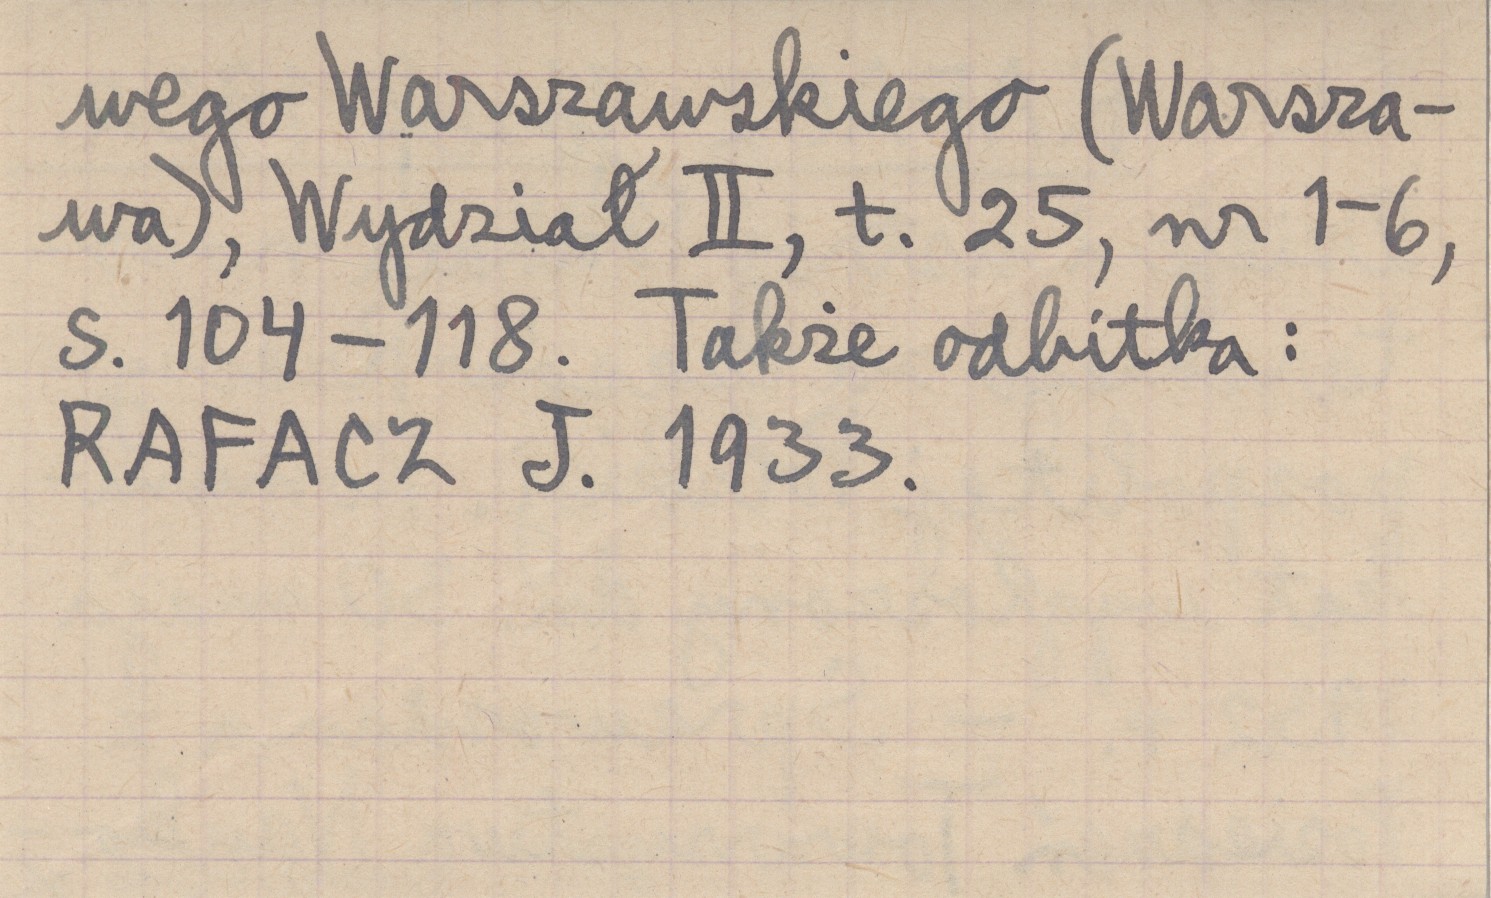 wego Warszawskiego (Warsza-
wa), Wydział II, t. 25, nr 1-6,
s. 104-118. Także odbitka:
RAFACZ J. 1933.